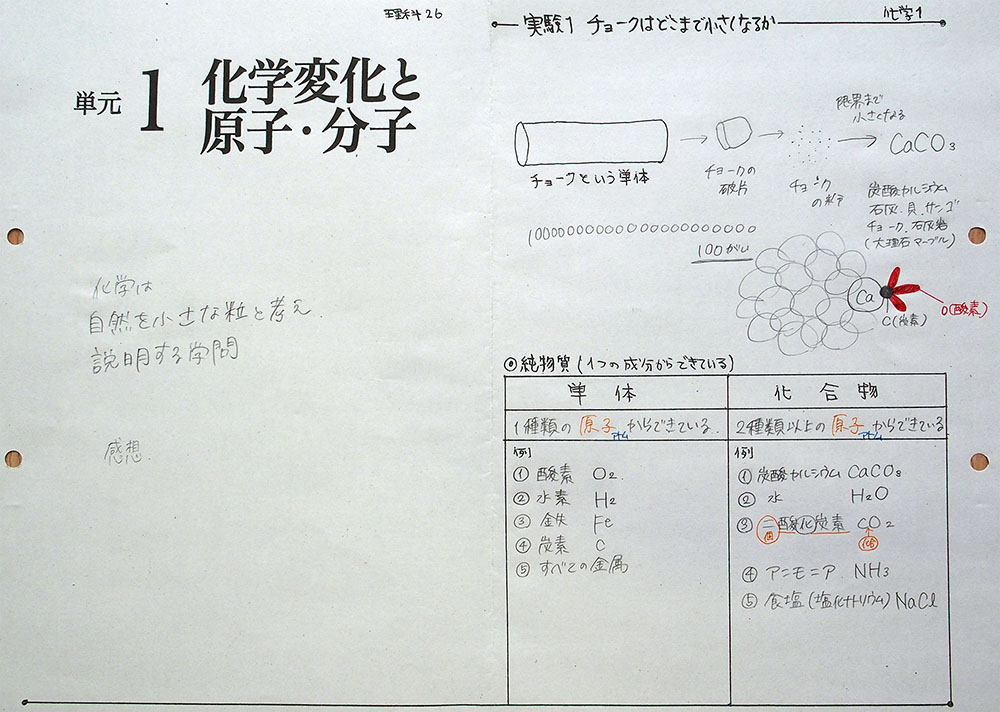 理科26
単元 1 化学変化と
原子・分子
化学は
自然を小さな粒と考え
説明する学問
感想.
化学1
実験1 チョークはどこまで小さくなるか
限界まで
小さくなる
CaCO3
チョークという単体
チョークの
破片
チョーク
の粉
炭酸カルシウム
石灰.貝.サンゴ
チョーク.石灰岩
(大理石マーブル)
100がい
Ca
C(炭素)
O(酸素)
◎純物質(1つの成分からできている)
単体
化合物
1種類の原子からできている.
アトム
2種類以上の原子からできている
アトム
例
① 酸素 O2.
② 水素 H2
③ 金失 Fe
④ 炭素 C
⑤ すべての金属
例
① 炭酸カルシウム CaCO3
② 水 H2O
③ 二酸化炭素 CO2
個
④ アンモニア NH3
⑤ 食塩(塩化ナトリウム) NaCl